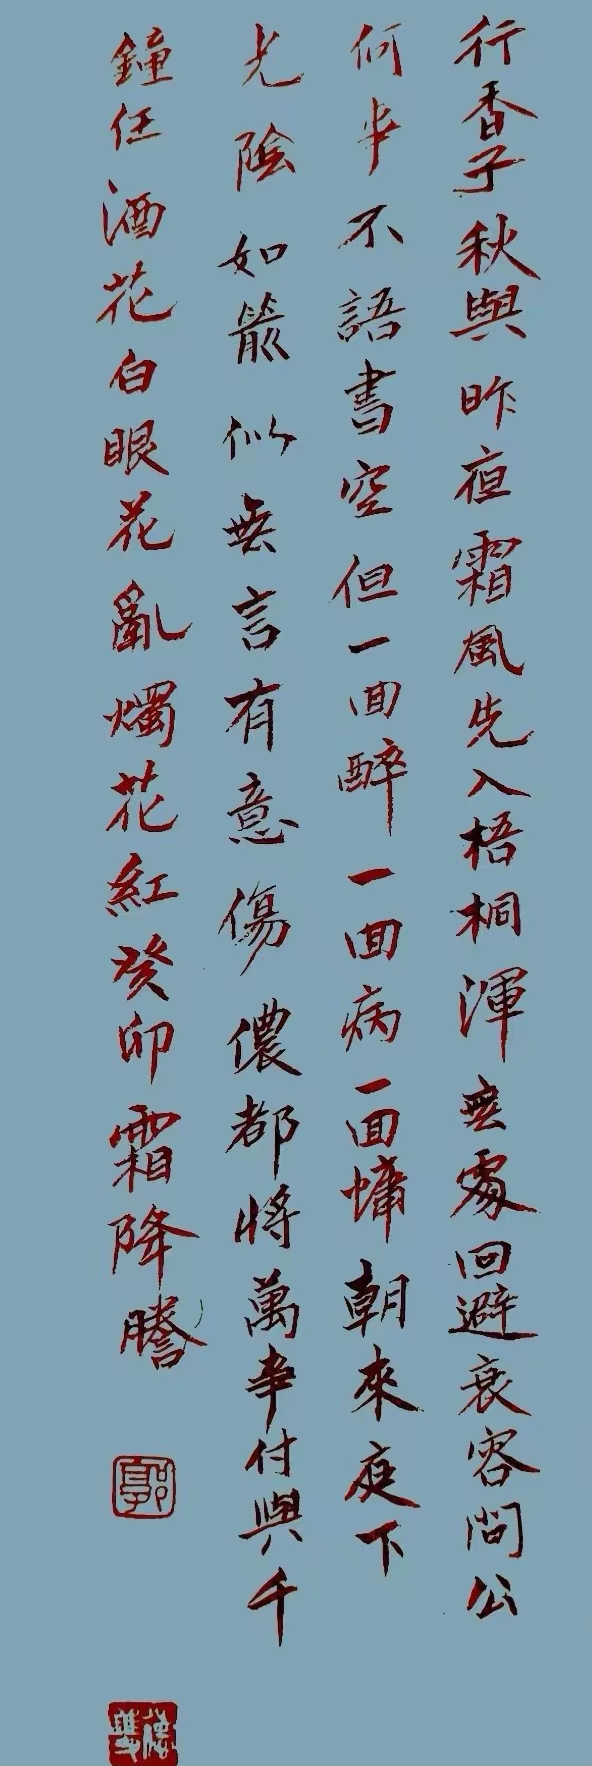 行香子秋與昨夜霜風先入梧桐渾無處回避衰容問公
何事不語書空但一回醉一回病一回慵朝來庭下
光陰如箭似無言有意傷儂都將萬事付與千
鐘任酒花白眼花亂燭花紅癸卯霜降騰
郭